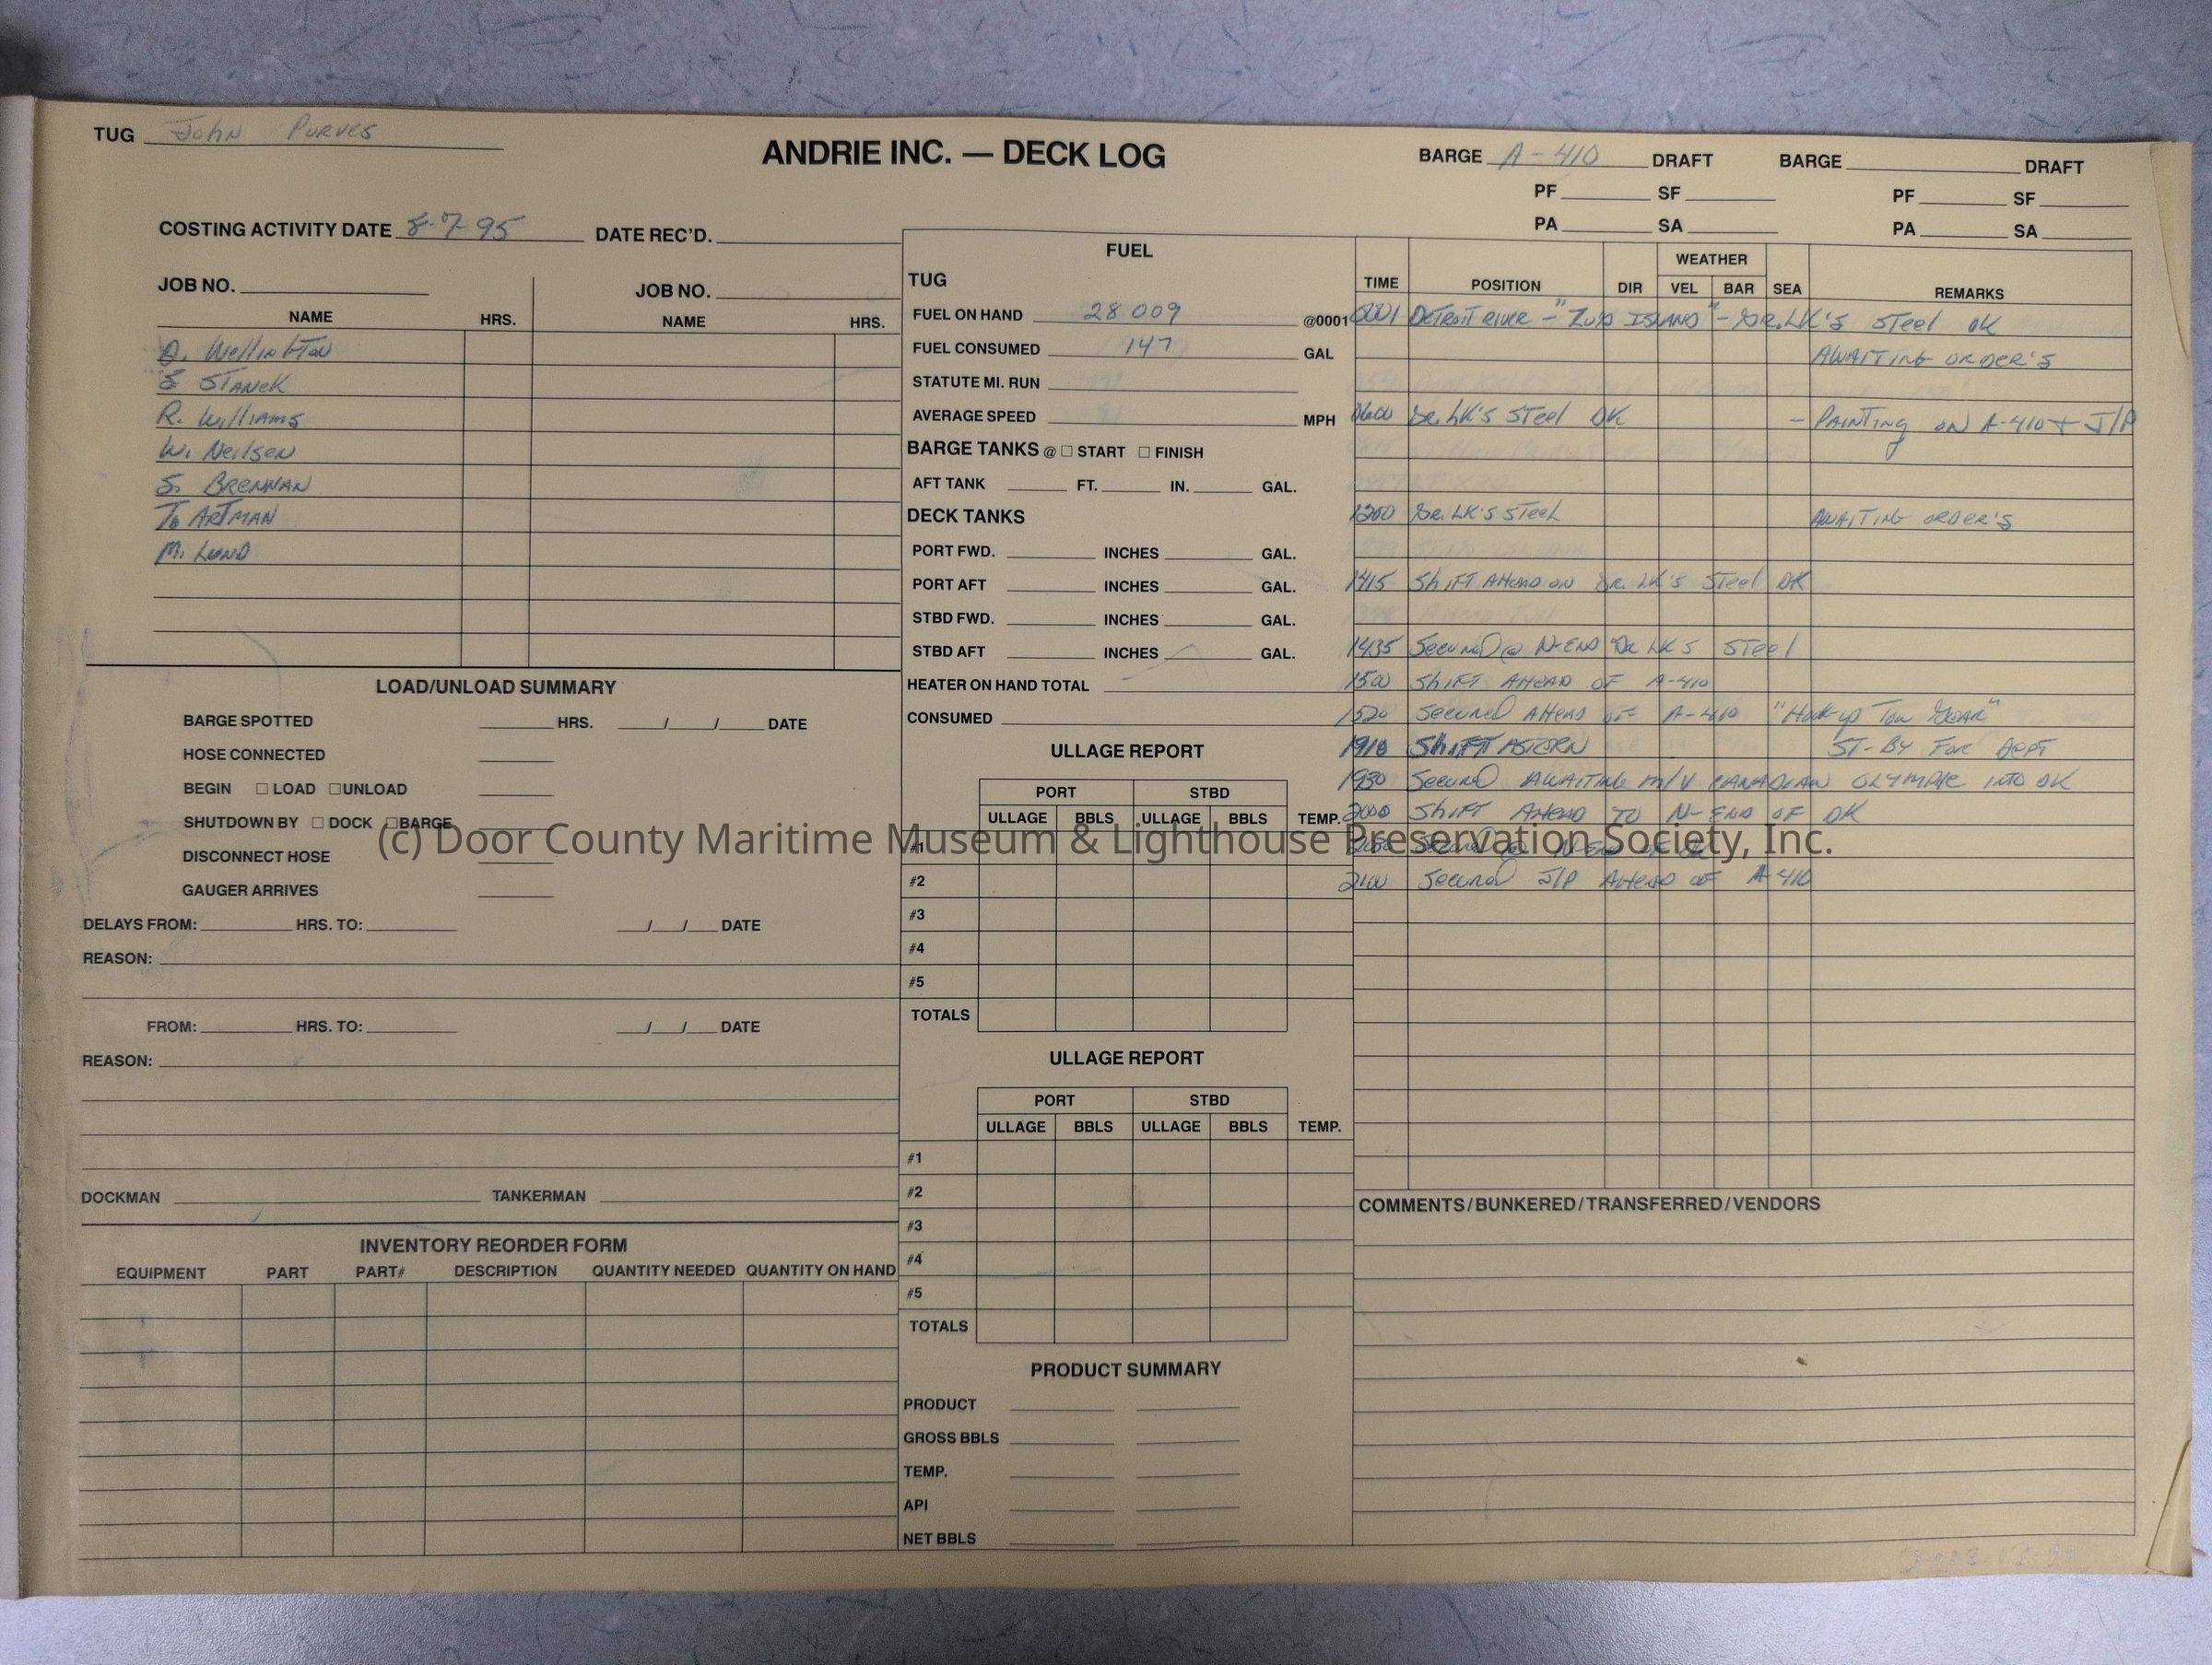 TUG John Purves
ANDRIE INC. — DECK LOG
BARGE A-410 DRAFT BARGE DRAFT
PF SF PF SF
PA SA PA SA
COSTING ACTIVITY DATE 8-7-95 DATE REC'D.
JOB NO. JOB NO.
NAME HRS. NAME HRS.
D. Wellington
S STANEK
R. Williams
W. Neilsen
S. BRENNAN
T. ARTMAN
M. LUND
LOAD/UNLOAD SUMMARY
BARGE SPOTTED HRS. / / DATE
HOSE CONNECTED
BEGIN ☐ LOAD ☐ UNLOAD
SHUTDOWN BY ☐ DOCK ☐ BARGE
DISCONNECT HOSE
GAUGER ARRIVES
DELAYS FROM: HRS. TO: / / DATE
REASON:
FROM: HRS. TO: / / DATE
REASON:
DOCKMAN TANKERMAN
INVENTORY REORDER FORM
EQUIPMENT PART PART# DESCRIPTION QUANTITY NEEDED QUANTITY ON HAND
FUEL
TUG
FUEL ON HAND 28 009 @0001
FUEL CONSUMED 147 GAL
STATUTE MI. RUN
AVERAGE SPEED MPH
BARGE TANKS @ ☐ START ☐ FINISH
AFT TANK FT. IN. GAL.
DECK TANKS
PORT FWD. INCHES GAL.
PORT AFT INCHES GAL.
STBD FWD. INCHES GAL.
STBD AFT INCHES GAL.
HEATER ON HAND TOTAL
CONSUMED
ULLAGE REPORT
PORT STBD
ULLAGE BBLS ULLAGE BBLS TEMP.
#1
#2
#3
#4
#5
TOTALS
ULLAGE REPORT
PORT STBD
ULLAGE BBLS ULLAGE BBLS TEMP.
#1
#2
#3
#4
#5
TOTALS
PRODUCT SUMMARY
PRODUCT
GROSS BBLS
TEMP.
API
NET BBLS
WEATHER
TIME POSITION DIR VEL BAR SEA REMARKS
0001 DETROIT RIVER - "ZUG ISLAND" - Gr. LK'S Steel DK
AWAITING ORDER'S
0600 Gr. LK'S Steel DK - PAINTING ON A-410 + J/P
1200 Gr. LK'S STEEL AWAITING ORDER'S
1415 Shift AHEAD ON Gr. LK'S Steel DK
1435 Secured @ N-END Gr LK'S STEEL
1500 Shift AHEAD OF A-410
1520 Secured AHEAD OF A-410 "Hook-up Tow Gear"
1910 Shift ASTERN ST-BY For DEPT
1930 Secured AWAITING M/V CANADIAN OLYMPIC INTO DK
2000 Shift AHEAD TO N-END OF DK
Secured @ N-END
2100 Secured J/P AHEAD OF A-410
COMMENTS/BUNKERED/TRANSFERRED/VENDORS
(c) Door County Maritime Museum & Lighthouse Preservation Society, Inc.